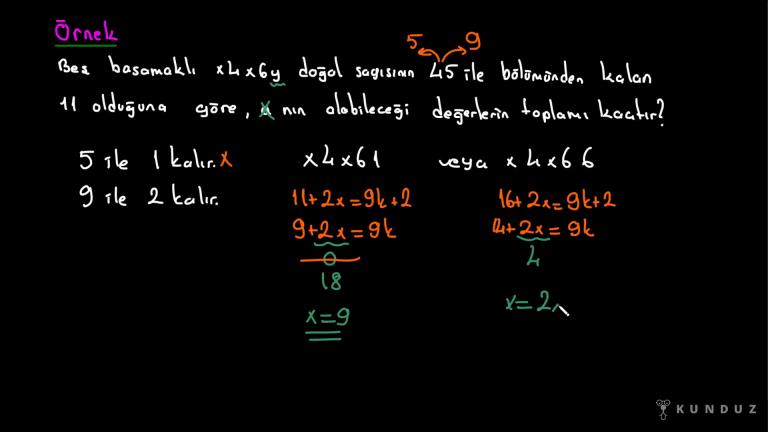 Örnek
5 9
Beş basamaklı x4x6y doğal sayısının 45 ile bölümünden kalan
11 olduğuna göre, x nın alabileceği değerlerin toplamı kaçtır?
5 ile 1 kalır. x x4x61 veya x4x66
9 ile 2 kalır. 11+2x=9k+2 16+2x=9k+2
9+2x=9k 14+2x=9k
0 4
18
x=9 x=2,
KUNDUZ